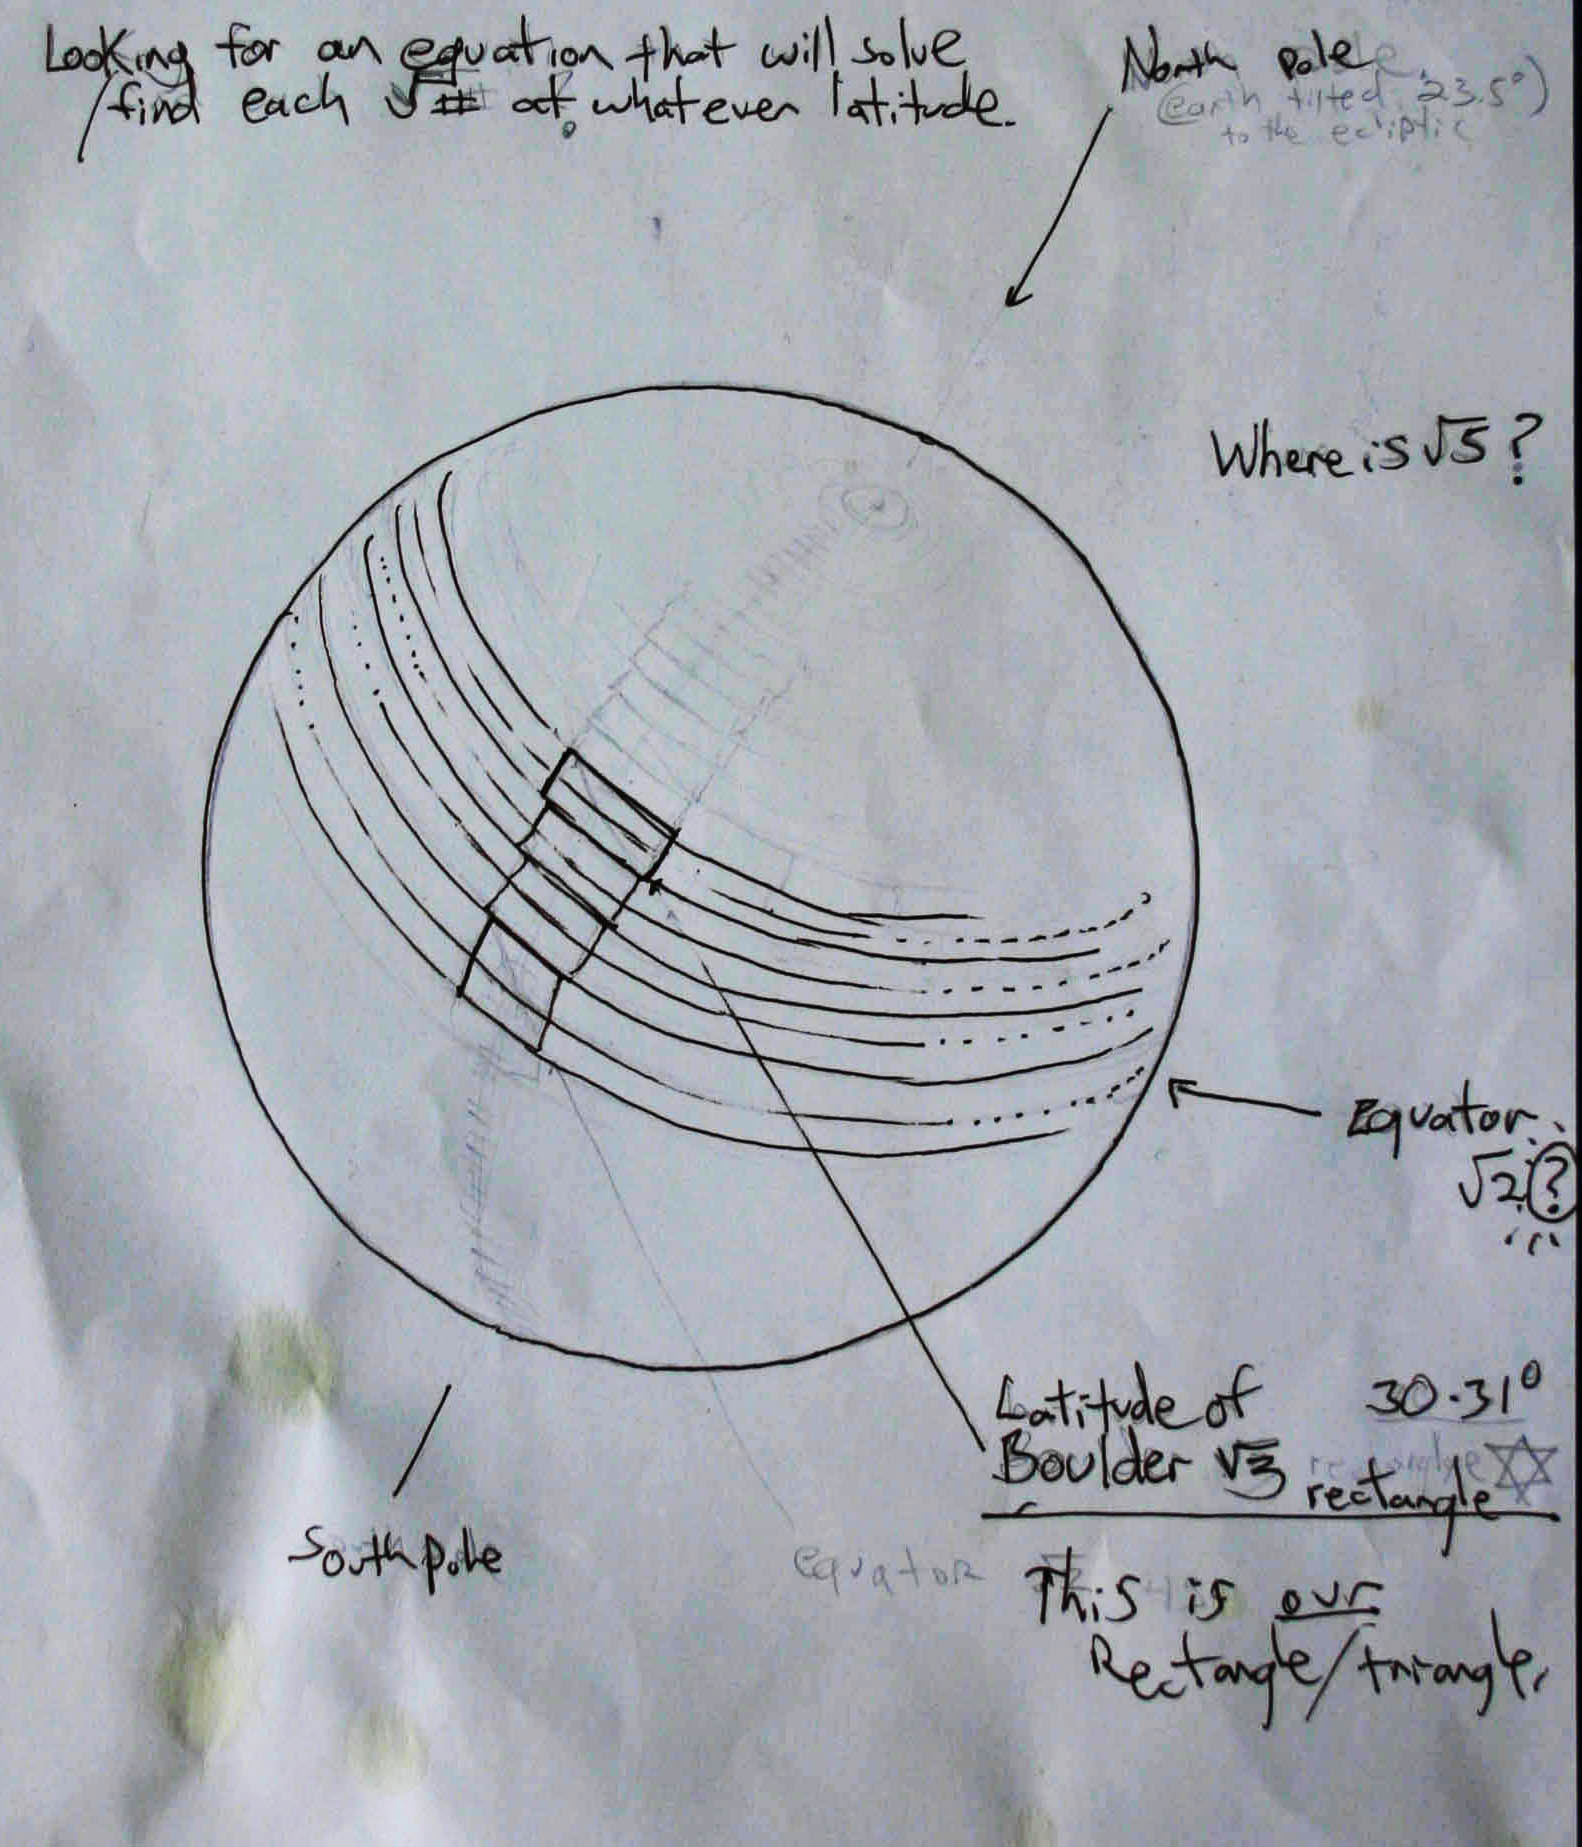 Looking for an equation that will solve
/find each √# at whatever latitude.
North pole
(earth tilted 23.5°)
to the ecliptic
Where is √5?
Equator.
√2?
Latitude of 30.31°
Boulder √3 rectangle
South pole
equator
This is our
Rectangle/triangle,